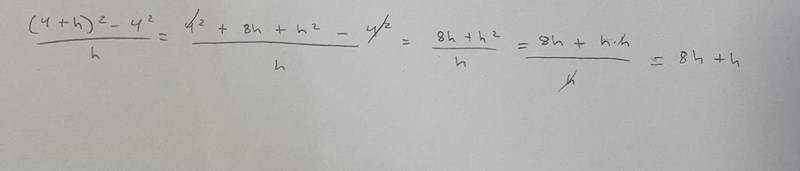 (4+h)² - 4² / h = 4² + 8h + h² - 4² / h = 8h + h² / h = 8h + h·h / h = 8h + h